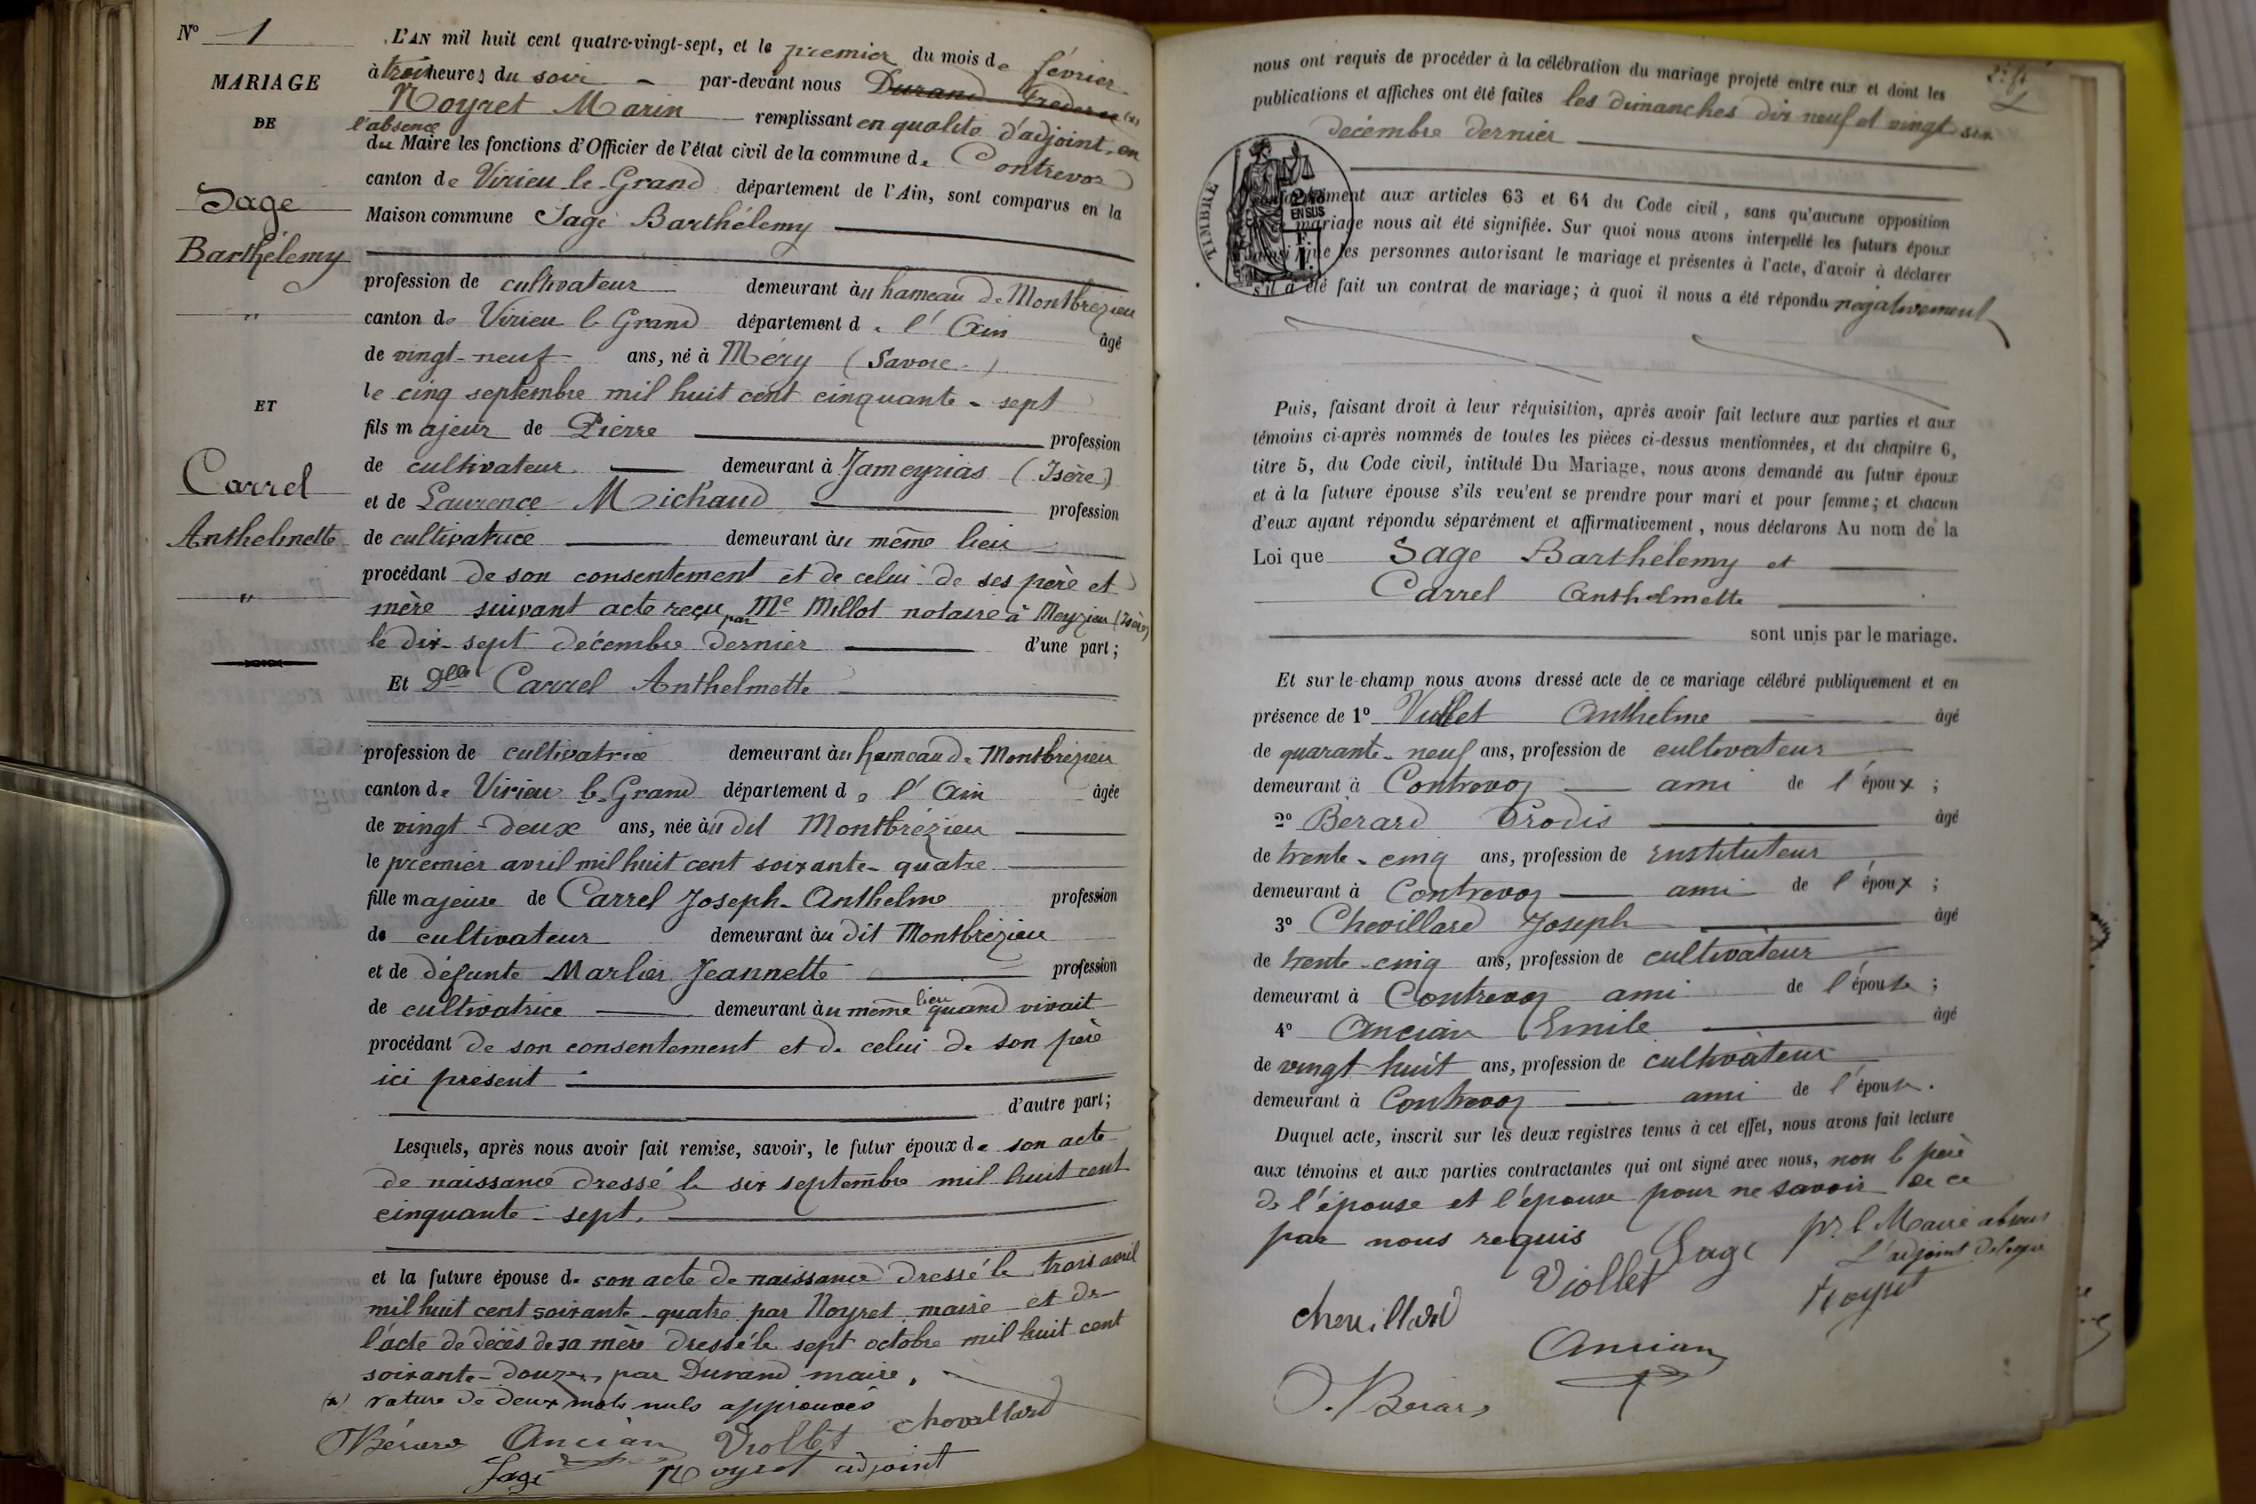 N° 1
MARIAGE
DE
Sage
Barthélemy
"
ET
Carrel
Anthelmette
"
L'AN mil huit cent quatre-vingt-sept, et le premier du mois de février
à trois heures du soir par-devant nous Durand Frédéric (x)
Noyret Marin remplissant en qualité d'adjoint, en
l'absence
du Maire les fonctions d'Officier de l'état civil de la commune de Contrevoz
canton de Virieu le Grand département de l'Ain, sont comparus en la
Maison commune Sage Barthélemy
profession de cultivateur demeurant au hameau de Montbrézieu
canton de Virieu le Grand département de l'Ain âgé
de vingt-neuf ans, né à Méry (Savoie)
le cinq septembre mil huit cent cinquante-sept
fils majeur de Pierre profession
de cultivateur demeurant à Jameyrias (Isère)
et de Laurence Michaud profession
de cultivatrice demeurant au même lieu
procédant de son consentement et de celui de ses père et
mère suivant acte reçu par Me Millot notaire à Meyzieu (Isère)
le dix-sept décembre dernier d'une part;
Et Dlle Carrel Anthelmette
profession de cultivatrice demeurant au hameau de Montbrézieu
canton de Virieu le Grand département de l'Ain âgée
de vingt-deux ans, née au dit Montbrézieu
le premier avril mil huit cent soixante-quatre
fille majeure de Carrel Joseph-Anthelme profession
de cultivateur demeurant au dit Montbrézieu
et de défunte Marlier Jeannette profession
de cultivatrice demeurant au même lieu quand vivait
procédant de son consentement et de celui de son père
ici présent
d'autre part;
Lesquels, après nous avoir fait remise, savoir, le futur époux de son acte
de naissance dressé le six septembre mil huit cent
cinquante-sept.
et la future épouse de son acte de naissance dressé le trois avril
mil huit cent soixante-quatre par Noyret, maire et de
l'acte de décès de sa mère dressé le sept octobre mil huit cent
soixante-douze, par Durand maire.
(x) rature de deux mots nuls approuvés
Bérard Ancian Viollet Chevillard
Sage Noyret adjoint
nous ont requis de procéder à la célébration du mariage projeté entre eux et dont les
publications et affiches ont été faites les dimanches dix neuf et vingt six
décembre dernier
TIMBRE
2/10 EN SUS
aux articles 63 et 64 du Code civil, sans qu'aucune opposition
mariage nous ait été signifiée. Sur quoi nous avons interpellé les futurs époux
ainsi que les personnes autorisant le mariage et présentes à l'acte, d'avoir à déclarer
s'il a été fait un contrat de mariage; à quoi il nous a été répondu négativement
Puis, faisant droit à leur réquisition, après avoir fait lecture aux parties et aux
témoins ci-après nommés de toutes les pièces ci-dessus mentionnées, et du chapitre 6,
titre 5, du Code civil, intitulé Du Mariage, nous avons demandé au futur époux
et à la future épouse s'ils veulent se prendre pour mari et pour femme; et chacun
d'eux ayant répondu séparément et affirmativement, nous déclarons Au nom de la
Loi que Sage Barthélemy et
Carrel Anthelmette
sont unis par le mariage.
Et sur-le-champ nous avons dressé acte de ce mariage célébré publiquement et en
présence de 1° Viollet Anthelme âgé
de quarante-neuf ans, profession de cultivateur
demeurant à Contrevoz ami de l'époux ;
2° Bérard Prodis âgé
de trente-cinq ans, profession de instituteur
demeurant à Contrevoz ami de l'époux ;
3° Chevillard Joseph âgé
de trente-cinq ans, profession de cultivateur
demeurant à Contrevoz ami de l'épouse ;
4° Ancian Emile âgé
de vingt huit ans, profession de cultivateur
demeurant à Contrevoz ami de l'épouse.
Duquel acte, inscrit sur les deux registres tenus à cet effet, nous avons fait lecture
aux témoins et aux parties contractantes qui ont signé avec nous, non le père
de l'épouse et l'épouse pour ne savoir de ce
par nous requis Sage pr le Maire absent
Viollet L'adjoint délégué
Chevillard Noyret
Ancian
Bérard